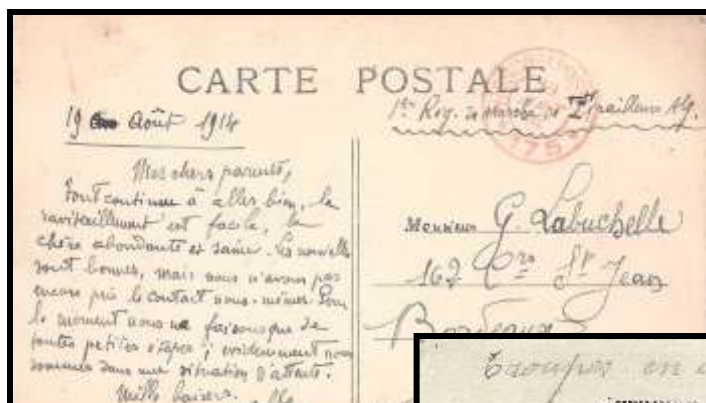 CARTE POSTALE
19 Août 1914
1er Reg. de marche de Tirailleurs Alg.
Mes chers parents,
Tout continue à aller bien, le
ravitaillement est facile, la
chère abondante et saine. Les nouvelles
sont bonnes, mais nous n'avons pas
encore pris le contact nous-mêmes. Pour
le moment nous ne faisons que de
toutes petites étapes ; evidemment nous
sommes dans une situation d'attente.
Mille baisers.
Monsieur G. Labuchelle
167 Crs St Jean
Bordeaux
Troupes en